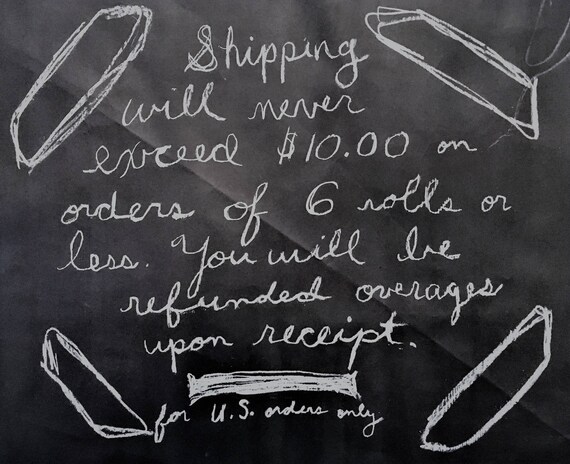 Shipping
will never
exceed $10.00 on
orders of 6 rolls or
less. You will be
refunded overages
upon receipt.
for U.S. orders only